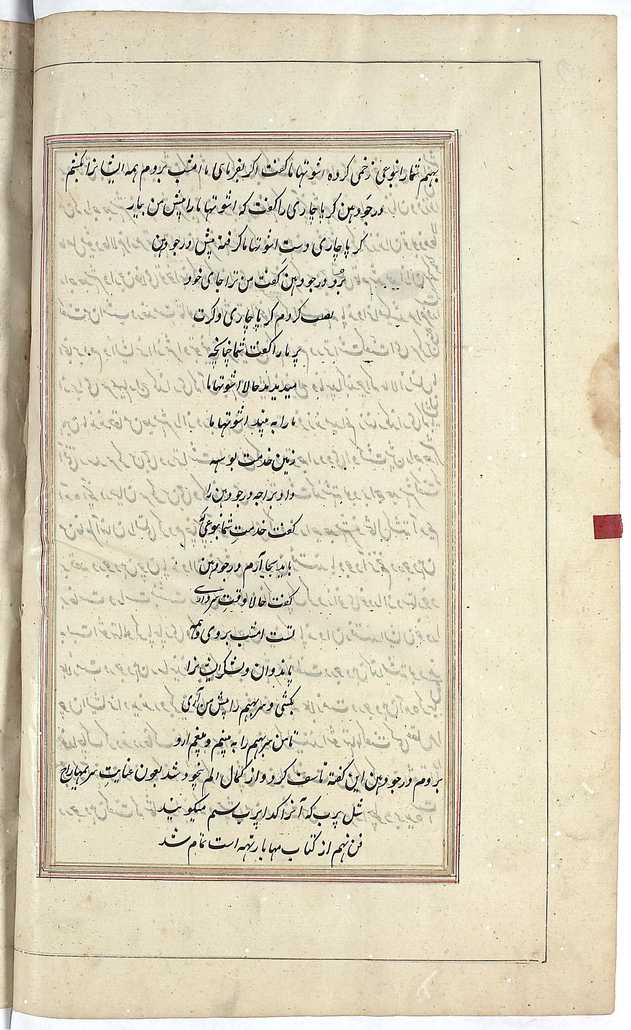 بهیم شما را نبوعی زخمی کرده اشوتهاما گفت اگر بفرمای ما امشب برویم همه ایشانرا بکشم
درجودهن کرپاچاری را گفت که اشوتهاما را پیش من بیار
کرپاچاری دست اشوتهاما گرفته پیش درجودهن
برد درجودهن گفت من ترا جای خود
نصب کردم کرپاچاری و کرت
برما را گفت شما چنانچه
میدیدید حالا اشوتهاما
ما را به بینید اشوتهاما
زمین خدمت بوسه
داد و براجه درجودهن را
گفت خدمت شما نبوعی که
باید بجا آرم درجودهن
گفت حالا وقت سرداری
تست امشب بروی و همه
پاندوان و لشکر ایشانرا
بکشی و سر بهیم را پیش من آری
تا من سر بهیم را به بینم و بیغم ازو
بروم درجودهن این گفته تاسف کرد و از کمال الم بیخود شد بعون عنایت سریمهاراج
شل پرب که آنرا گدا پرب سیم میگویند
فن نهم از کتاب مهابارتهه است تمام شد